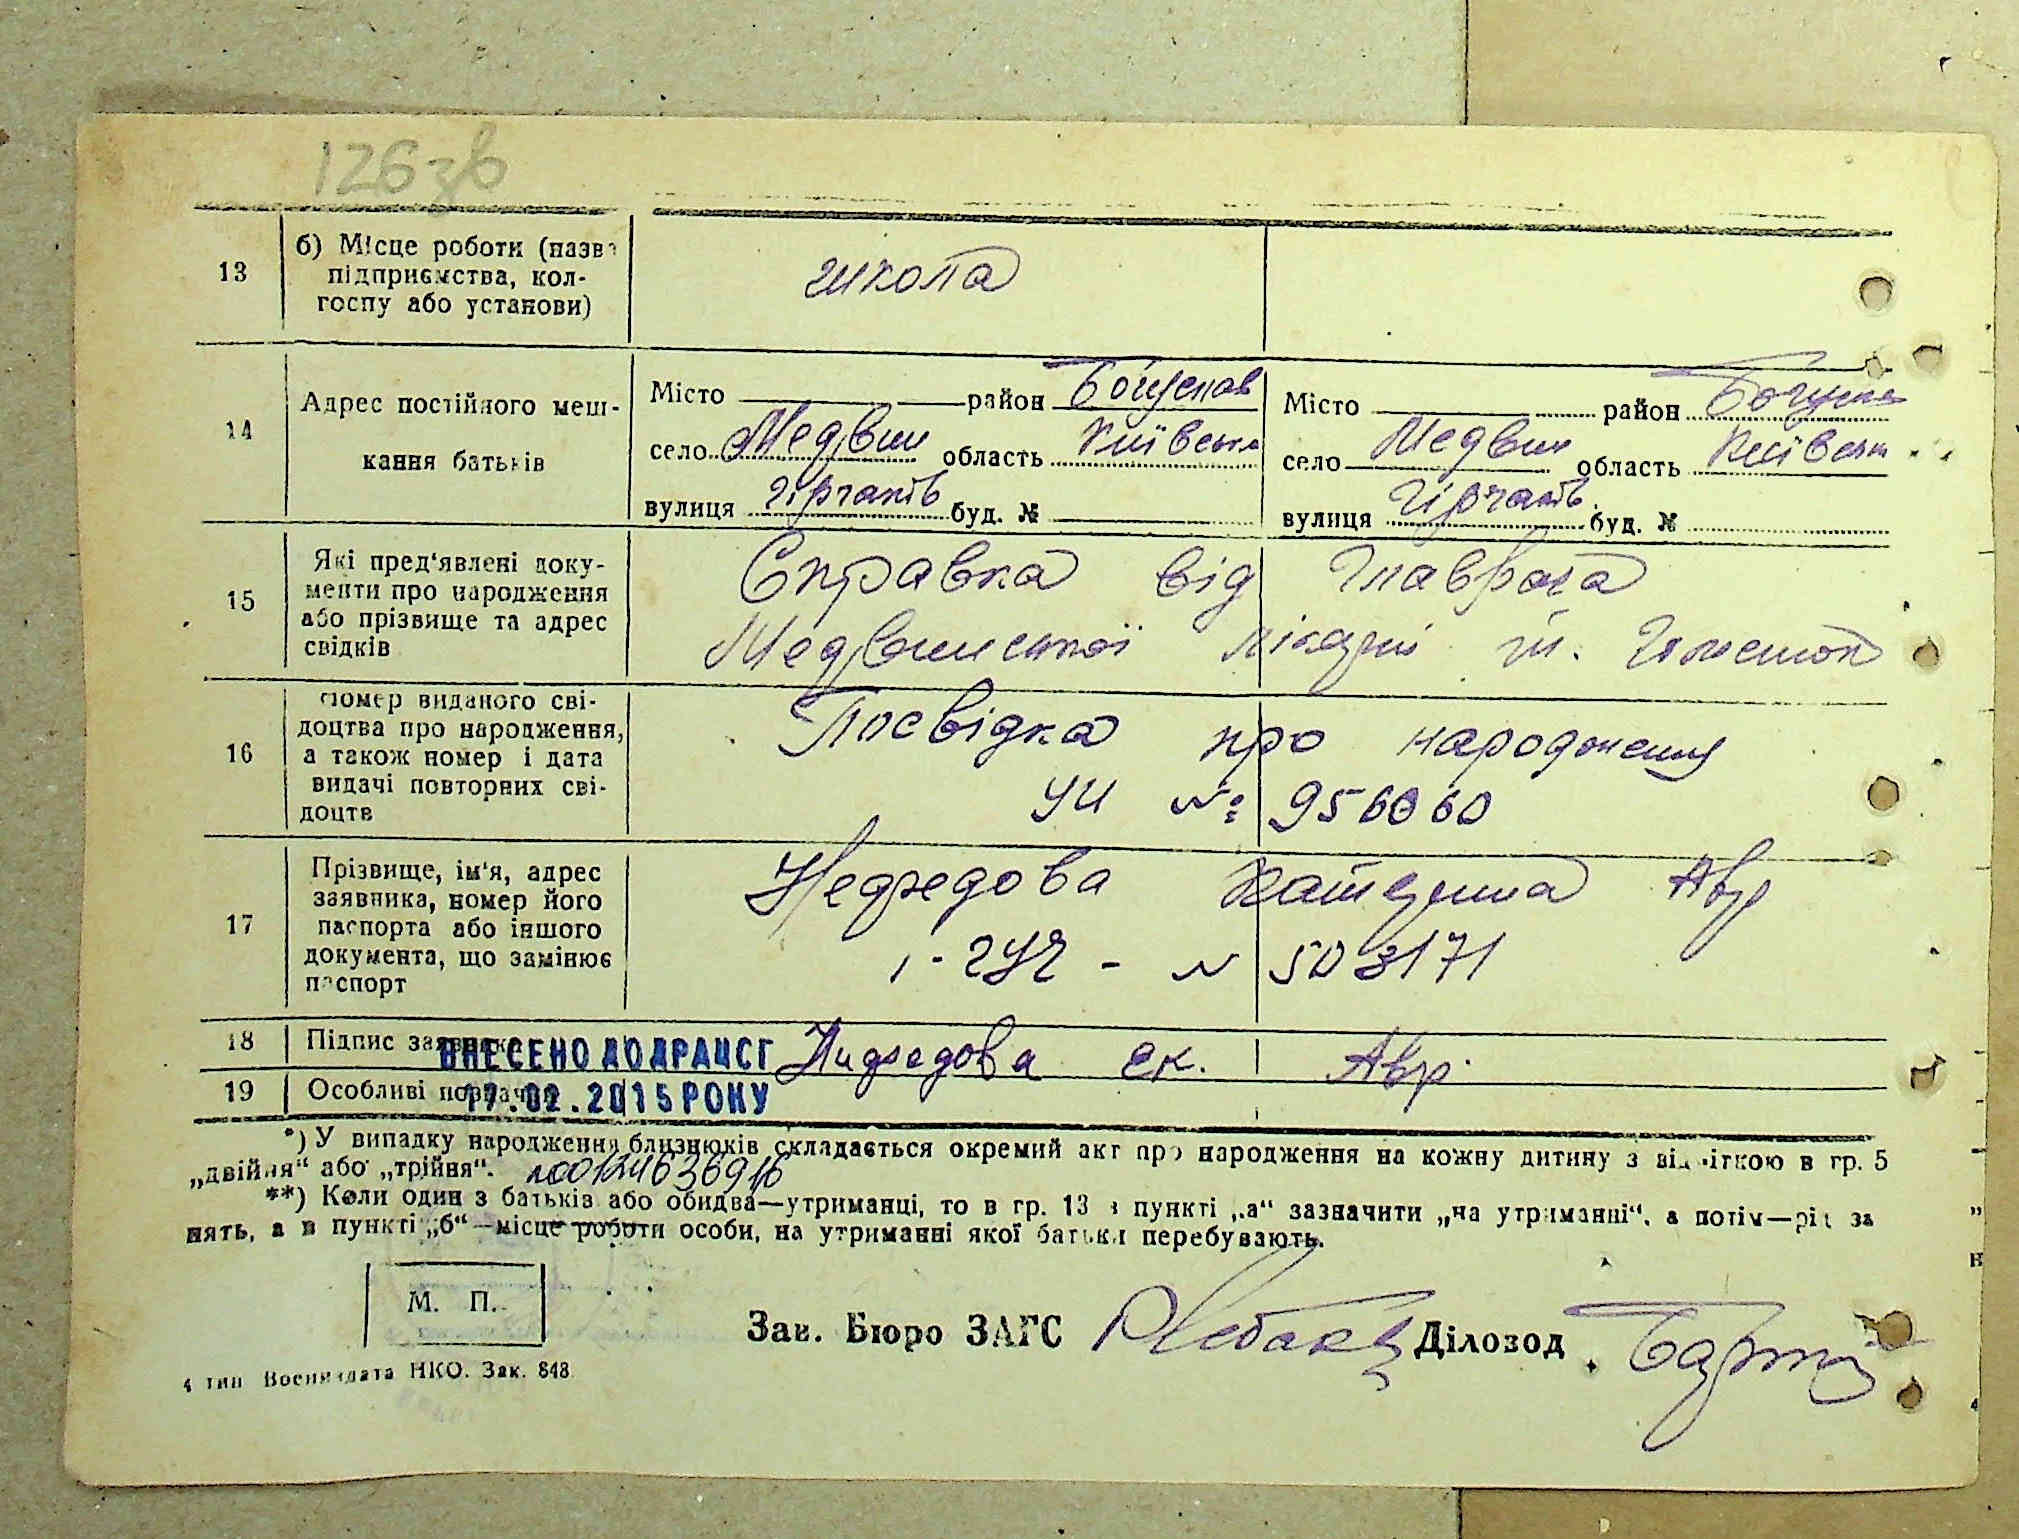 126зв
13
б) Місце роботи (назва
підприємства, кол-
госпу або установи)
школа
14
Адрес постійного меш-
кання батьків
Місто район Богуслав
село Медвин область Київськ
вулиця буд. №
Місто район Богусл
село Медвин область Київськ
вулиця буд. №
15
Які пред'явлені доку-
менти про народження
або прізвище та адрес
свідків
Справка від Главрача
Медвинської лікарні
16
Номер виданого сві-
доцтва про народження,
а також номер і дата
видачі повторних сві-
доцтв
Посвідка про народження
УИ № 956060
17
Прізвище, ім'я, адрес
заявника, номер його
паспорта або іншого
документа, що замінює
паспорт
Катерина Авр
N 503171
18
Підпис заявника
ВНЕСЕНО ДО ДРАЦСГ
Ек. Авр.
19
Особливі позначки
17.02.2015 РОКУ
*) У випадку народження близнюків складається окремий акт про народження на кожну дитину з відміткою в гр. 5
„двійня“ або „трійня“.
**) Коли один з батьків або обидва—утриманці, то в гр. 13 в пункті „а“ зазначити „на утриманні“, а потім—рід за
нять, а в пункті „б“—місце роботи особи, на утриманні якої батьки перебувають.
М. П.
Зав. Бюро ЗАГС
Діловод
4 тип Воениздата НКО. Зак. 848